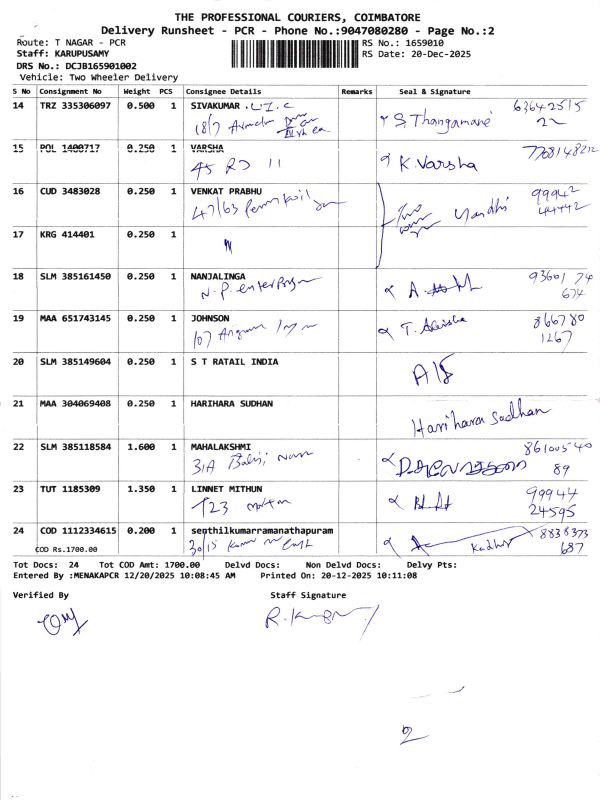 THE PROFESSIONAL COURIERS, COIMBATORE
Delivery Runsheet - PCR - Phone No.:9047080280 - Page No.:2
Route: T NAGAR - PCR RS No.: 1659010
Staff: KARUPUSAMY RS Date: 20-Dec-2025
DRS No.: DCJB165901002
Vehicle: Two Wheeler Delivery
S No Consignment No Weight PCS Consignee Details Remarks Seal & Signature
14 TRZ 335306097 0.500 1 SIVAKUMAR . L.I.C 63642515
18/7 S. Thangamani 22
15 POL 1400717 0.250 1 VARSHA 7708148212
45 RD 11 K. Varsha
16 CUD 3483028 0.250 1 VENKAT PRABHU 99942
47/63 44442
17 KRG 414401 0.250 1
18 SLM 385161450 0.250 1 NANJALINGA 93601 74
N. P. enterprises A. 674
19 MAA 651743145 0.250 1 JOHNSON 866780
107 T. 1267
20 SLM 385149604 0.250 1 S T RATAIL INDIA
A/S
21 MAA 304069408 0.250 1 HARIHARA SUDHAN
Harihara Sudhan
22 SLM 385118584 1.600 1 MAHALAKSHMI 86100540
31A 89
23 TUT 1185309 1.350 1 LINNET MITHUN 99944
T23 24595
24 COD 1112334615 0.200 1 senthilkumarramanathapuram 8838373
COD Rs.1700.00 30/15 687
Tot Docs: 24 Tot COD Amt: 1700.00 Delvd Docs: Non Delvd Docs: Delvy Pts:
Entered By :MENAKAPCR 12/20/2025 10:08:45 AM Printed On: 20-12-2025 10:11:08
Verified By Staff Signature
2